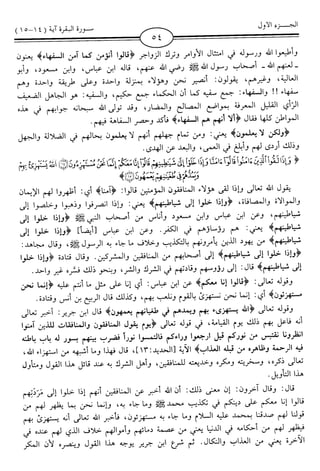 الجـــزء الأول
سورة البقرة آية (١٤-١٥)
٥٤
وأطيعوا الله ورسوله في امتثال الأوامر وترك الزواجر ﴿قالوا أنؤمن كما آمن السفهاء﴾ يعنون
- لعنهم الله - أصحاب رسول الله ﷺ رضي الله عنهم، قاله ابن عباس، وابن مسعود، وأبو
العالية، وغيرهم، يقولون: أنصير نحن وهؤلاء بمنزلة واحدة وعلى طريقة واحدة وهم
سفهاء !! والسفهاء: جمع سفيه كما أن الحكماء جمع حكيم، والسفيه: هو الجاهل الضعيف
الرأي القليل المعرفة بمواضع المصالح والمضار، وقد تولى الله سبحانه جوابهم في هذه
المواطن كلها فقال ﴿ألا إنهم هم السفهاء﴾ فأكد وحصر السفاهة فيهم.
﴿ولكن لا يعلمون﴾ يعني: ومن تمام جهلهم أنهم لا يعلمون بحالهم في الضلالة والجهل
وذلك أردى لهم وأبلغ في العمى، والبعد عن الهدى.
﴿ وَإِذَا لَقُوا الَّذِينَ ءَامَنُوا قَالُوا ءَامَنَّا وَإِذَا خَلَوْا إِلَىٰ شَيَاطِينِهِمْ قَالُوا إِنَّا مَعَكُمْ إِنَّمَا نَحْنُ مُسْتَهْزِءُونَ ﴿١٤﴾ اللَّهُ يَسْتَهْزِئُ بِهِمْ
وَيَمُدُّهُمْ فِي طُغْيَانِهِمْ يَعْمَهُونَ ﴿١٥﴾ ﴾
يقول الله تعالى وإذا لقي هؤلاء المنافقون المؤمنين قالوا: ﴿آمنا﴾ أي: أظهروا لهم الإيمان
والموالاة والمصافاة، ﴿وإذا خلوا إلى شياطينهم﴾ يعني: وإذا انصرفوا وذهبوا وخلصوا إلى
شياطينهم، وعن ابن عباس وابن مسعود وأناس من أصحاب النبي ﷺ ﴿وإذا خلوا إلى
شياطينهم﴾ يعني: هم رؤساؤهم في الكفر. وعن ابن عباس [أيضاً] ﴿وإذا خلوا إلى
شياطينهم﴾ من يهود الذين يأمرونهم بالتكذيب وخلاف ما جاء به الرسول ﷺ، وقال مجاهد:
﴿وإذا خلوا إلى شياطينهم﴾ إلى أصحابهم من المنافقين والمشركين. وقال قتادة ﴿وإذا خلوا
إلى شياطينهم﴾ قال: إلى رؤوسهم وقادتهم في الشرك والشر، وبنحو ذلك فسّره غير واحد.
وقوله تعالى: ﴿قالوا إنا معكم﴾ عن ابن عباس: أي إنا على مثل ما أنتم عليه ﴿إنما نحن
مستهزئون﴾ أي: إنما نحن نستهزئ بالقوم ونلعب بهم، وكذلك قال الربيع بن أنس وقتادة.
وقوله تعالى: ﴿الله يستهزىء بهم ويمدهم في طغيانهم يعمهون﴾ قال ابن جرير: أخبر تعالى
أنه فاعل بهم ذلك يوم القيامة، في قوله تعالى ﴿يوم يقول المنافقون والمنافقات للذين آمنوا
انظرونا نقتبس من نوركم قيل ارجعوا وراءكم فالتمسوا نوراً فضرب بينهم بسور له باب باطنه
فيه الرحمة وظاهره من قبله العذاب﴾ الآية [الحديد: ١٣]، قال فهذا وما أشبهه من استهزاء الله،
تعالى ذكره، وسخريته ومكره وخديعته للمنافقين، وأهل الشرك به عند قائل هذا القول ومتأول
هذا التأويل.
قال: وقال آخرون: إن معنى ذلك: أن الله أخبر عن المنافقين أنهم إذا خلوا إلى مَرَدَتِهم
قالوا إنا معكم على دينكم في تكذيب محمد ﷺ وما جاء به، وإنما نحن بما يظهر لهم من
قولنا لهم صدقنا بمحمد عليه السلام وما جاء به مستهزئون، فأخبر الله تعالى أنه يستهزئ بهم
فيظهر لهم من أحكامه في الدنيا يعني من عصمة دمائهم وأموالهم خلاف الذي لهم عنده في
الآخرة يعني من العذاب والنكال. ثم شرع ابن جرير يوجه هذا القول وينصره لأن المكر